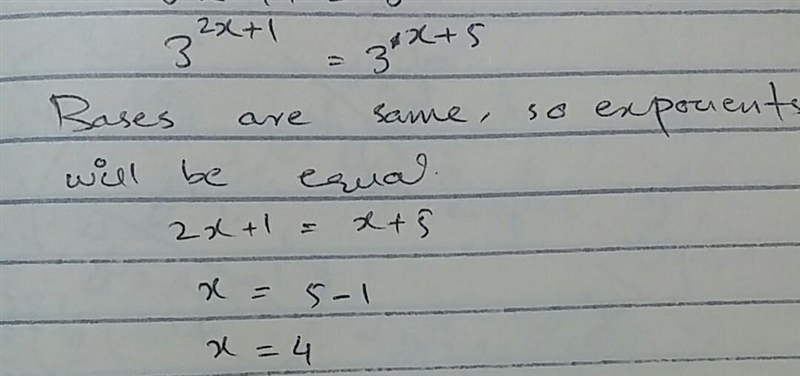 3^{2x+1} = 3^{x+5}
Bases are same, so exponents
will be equal.
2x+1 = x+5
x = 5-1
x = 4